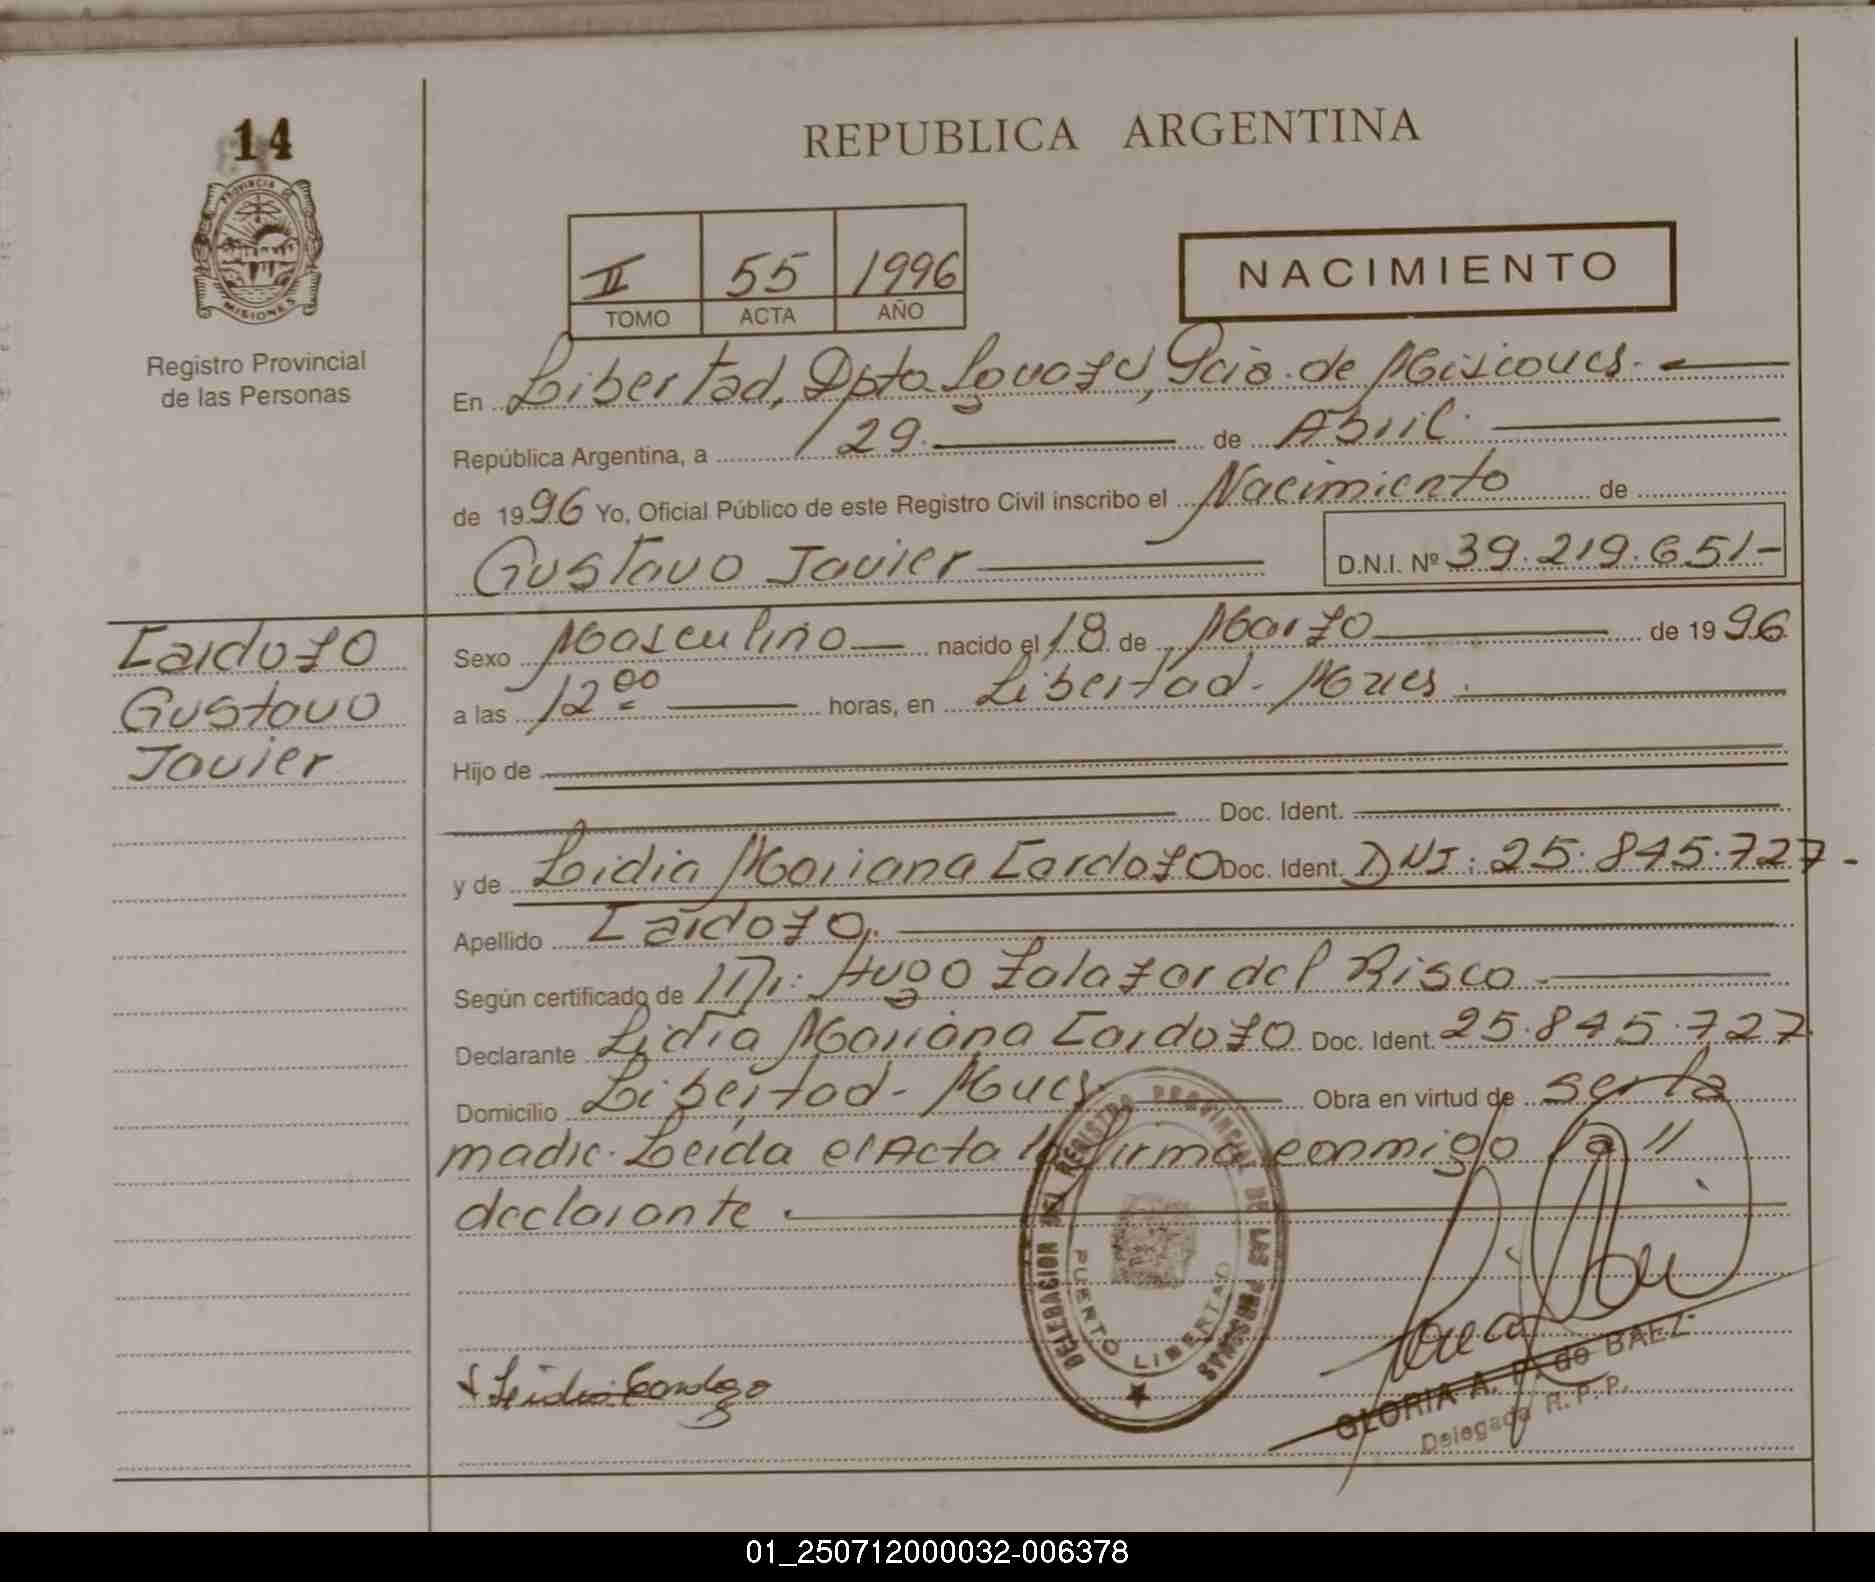 14
PROVINCIA DE
MISIONES
Registro Provincial
de las Personas
REPUBLICA ARGENTINA
II 55 1996
TOMO ACTA AÑO
NACIMIENTO
En Libertad, Dpto Iguazú, Pcia. de Misiones.
República Argentina, a 29 de Abril.
de 1996 Yo, Oficial Público de este Registro Civil inscribo el Nacimiento de
Gustavo Javier D.N.I. Nº 39.219.651-
Cardozo
Gustavo
Javier
Sexo Masculino nacido el 18 de Marzo de 1996
a las 12 00 horas, en Libertad - Mnes.
Hijo de
Doc. Ident.
y de Lidia Mariana Cardozo Doc. Ident. DNI: 25.845.727-
Apellido Cardozo.
Según certificado de Hugo Zalazar del Risco
Declarante Lidia Mariana Cardozo Doc. Ident. 25.845.727
Domicilio Libertad - Mnes Obra en virtud de ser la
madre. Leida el Acta la firma conmigo la //
declarante.
DELEGACION DEL REGISTRO PROVINCIAL DE LAS PERSONAS
PUERTO LIBERTAD
Lidia Cardozo
GLORIA A. de BAEZ
Delegada R.P.P.
01_250712000032-006378